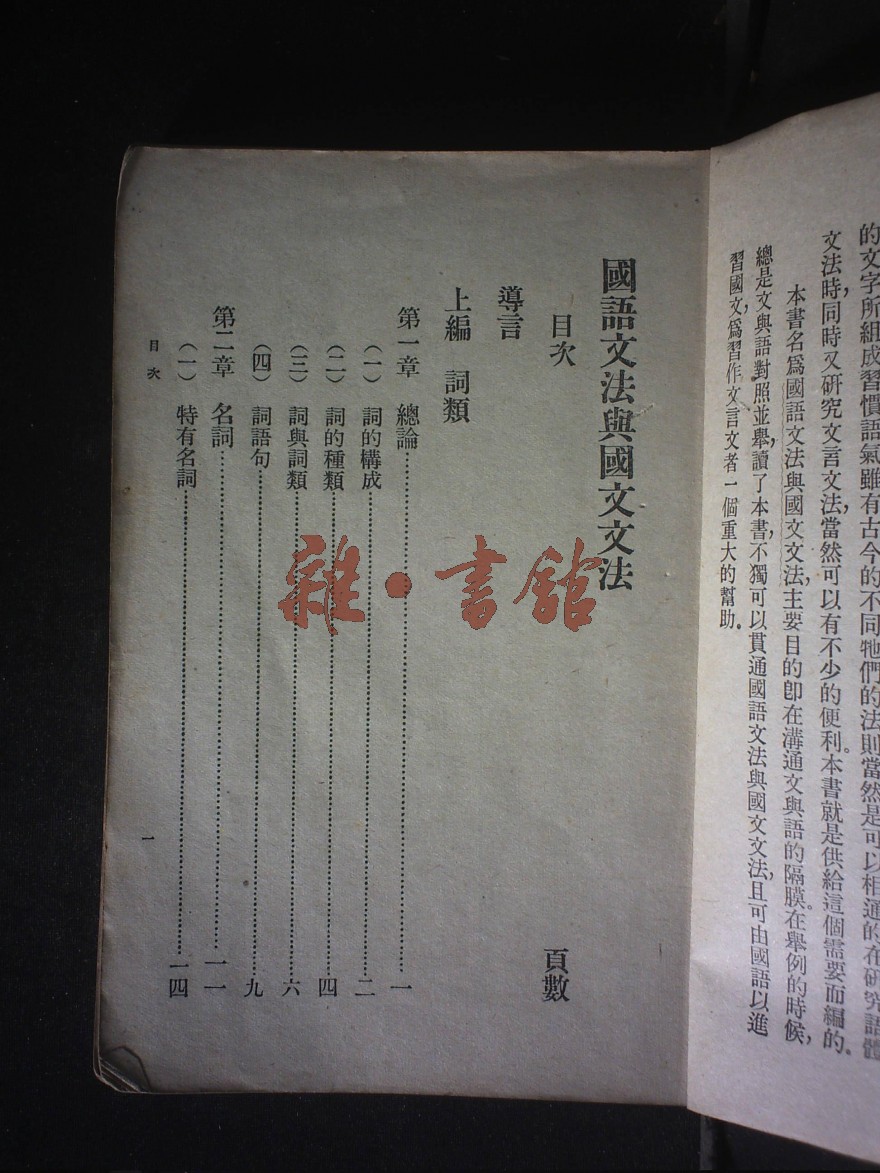 的文字所組成習慣語氣雖有古今的不同牠們的法則當然是可以相通的在研究語體
文法時，同時又研究文言文法，當然可以有不少的便利。本書就是供給這個需要而編的。
本書名爲國語文法與國文文法，主要目的卽在溝通文與語的隔膜。在舉例的時候，
總是文與語對照並舉，讀了本書，不獨可以貫通國語文法與國文文法，且可由國語以進
習國文，爲習作文言文者一個重大的幫助。
國語文法與國文文法
目次 頁數
導言
上編 詞類
第一章 總論…………一
（一） 詞的構成…………二
（二） 詞的種類…………四
（三） 詞與詞類…………六
（四） 詞語句…………九
第二章 名詞…………一一
（一） 特有名詞…………一四
目次
一
雜·書館